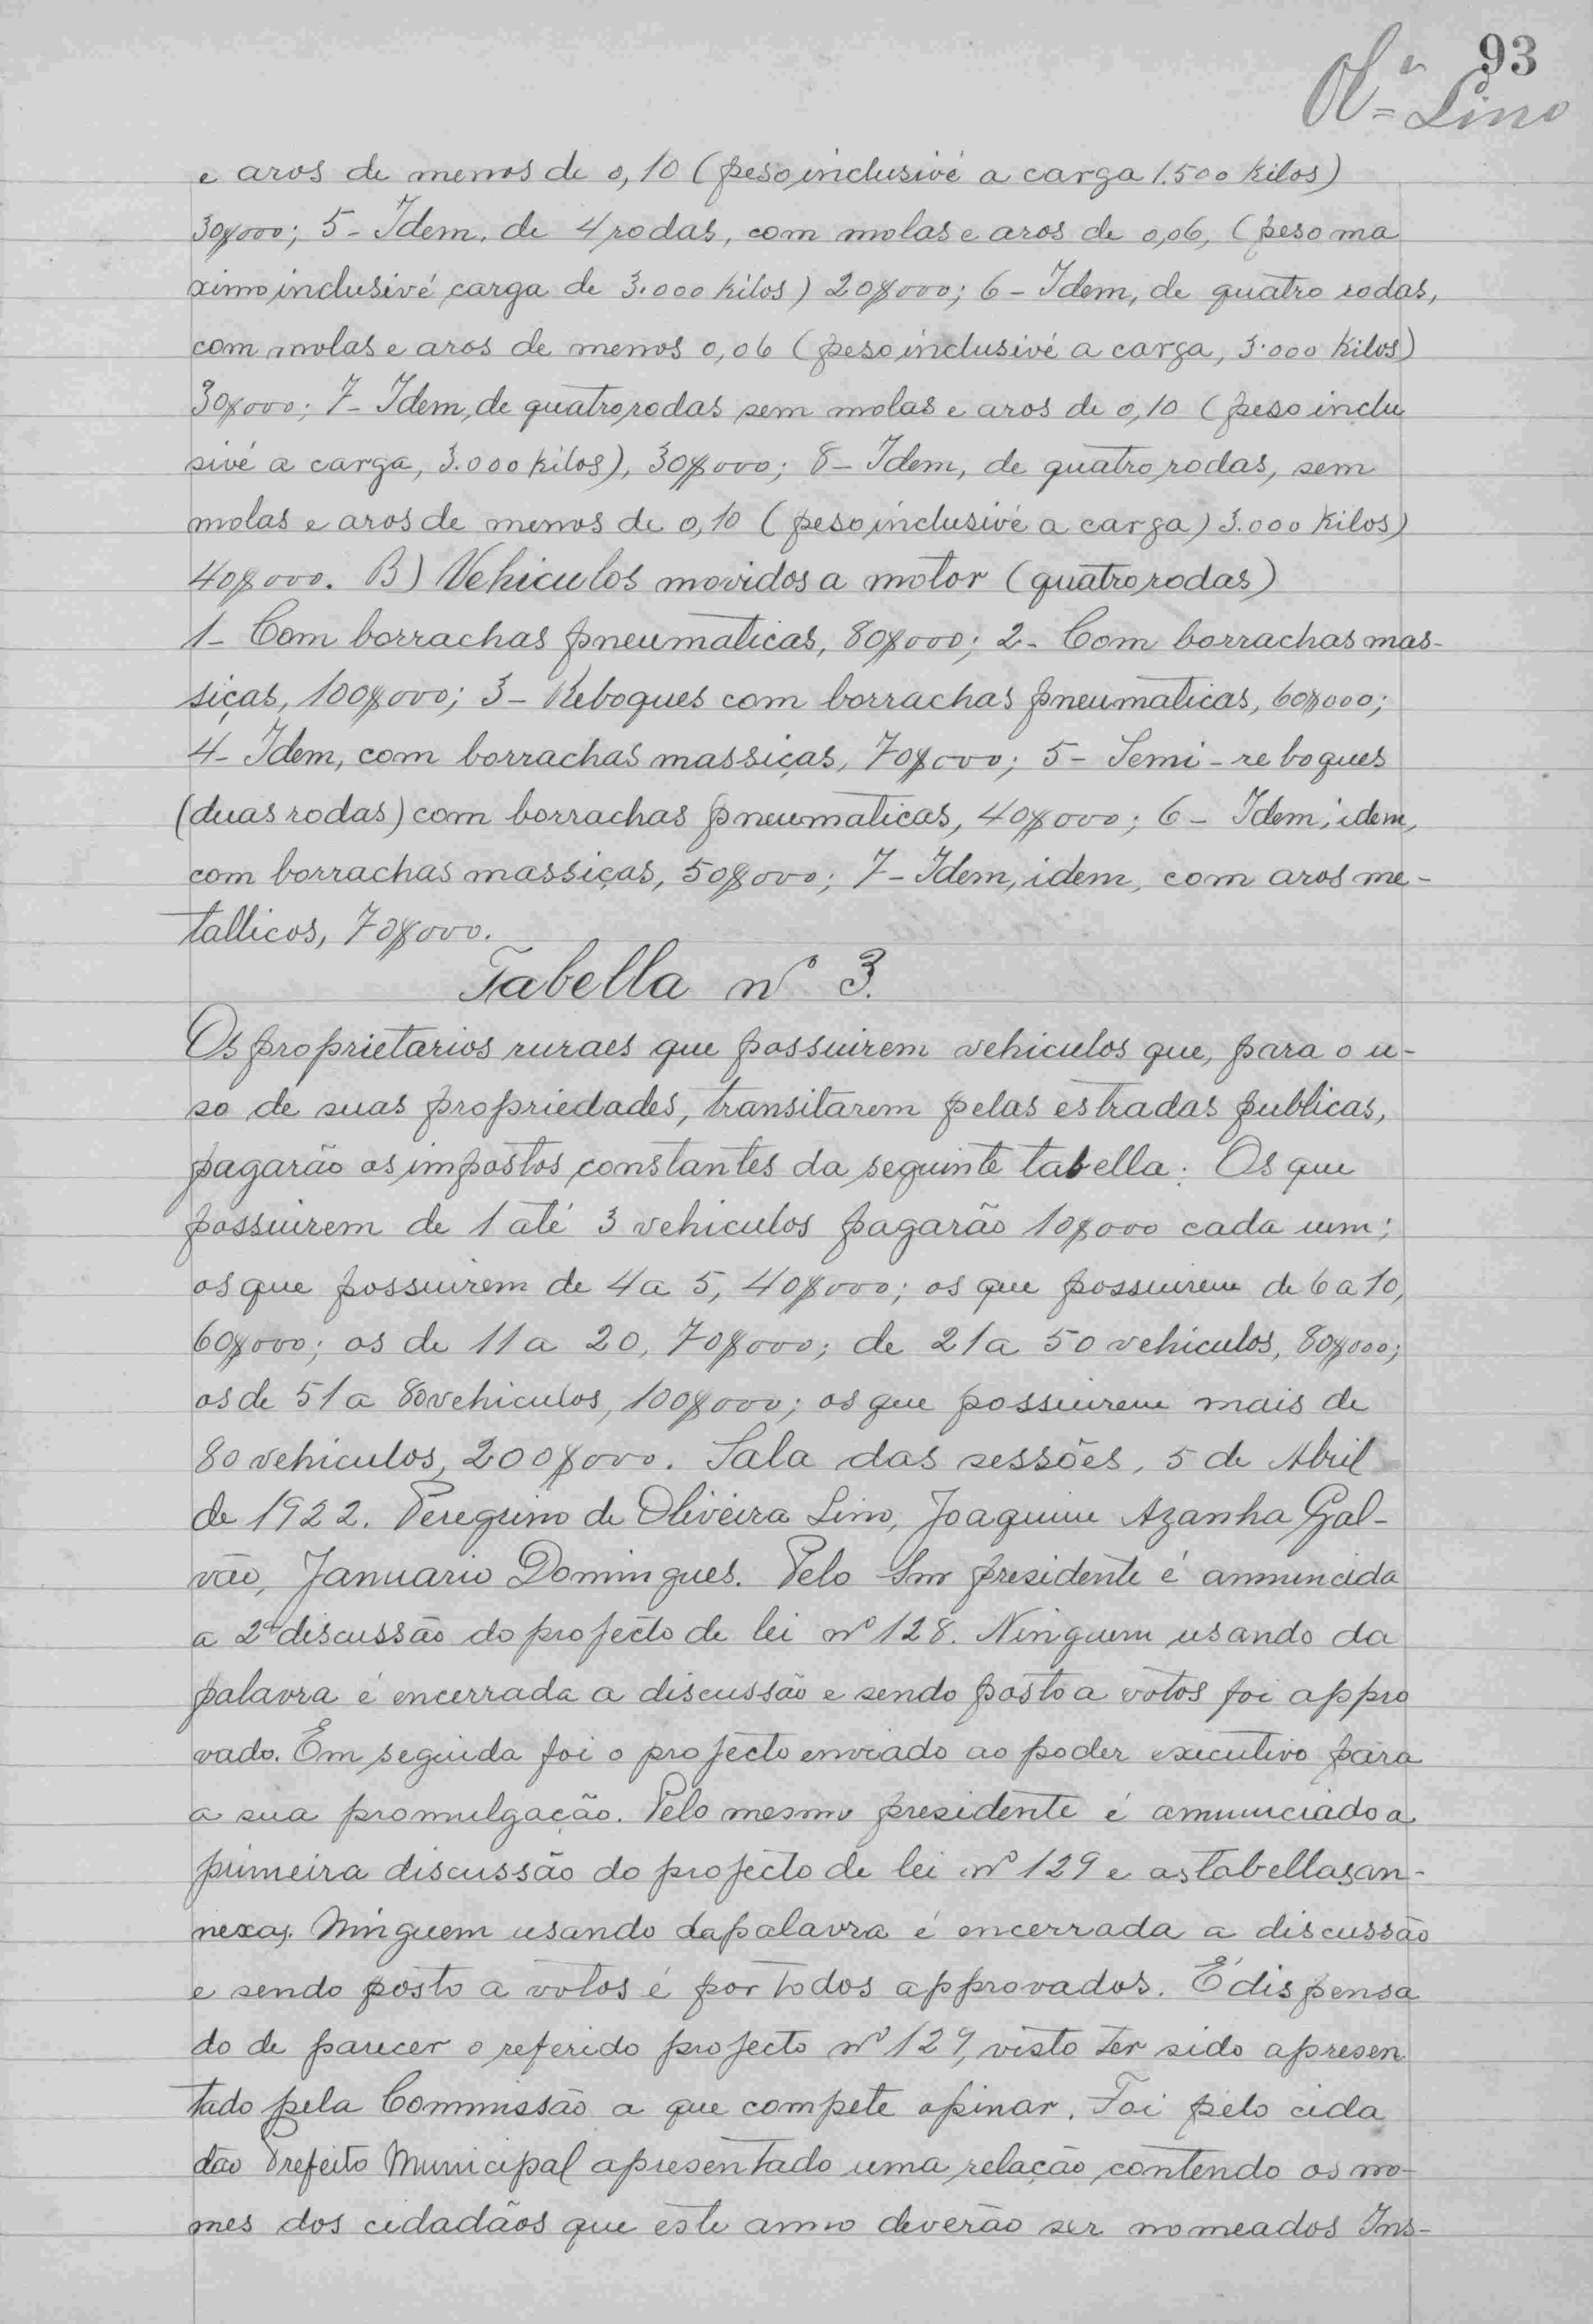 93
Olª Lino
e aros de menos de 0,10 (peso inclusivé a carga 1.500 kilos)
30$000; 5 - Idem, de 4 rodas, com molas e aros de 0,06, (peso ma
ximo inclusivé carga de 3.000 kilos) 20$000; 6 - Idem, de quatro rodas,
com molas e aros de menos 0,06 (peso inclusivé a carga, 3.000 kilos)
30$000; 7 - Idem, de quatro rodas sem molas e aros de 0,10 (peso inclu
sivé a carga, 3.000 kilos), 30$000; 8 - Idem, de quatro rodas, sem
molas e aros de menos de 0,10 (peso inclusivé a carga) 3.000 kilos)
40$000. B) Vehiculos movidos a motor (quatro rodas)
1 - Com borrachas pneumaticas, 80$000; 2 - Com borrachas mas-
siças, 100$000; 3 - Reboques com borrachas pneumaticas, 60$000;
4 - Idem, com borrachas massiças, 70$000; 5 - Semi - reboques
(duas rodas) com borrachas pneumaticas, 40$000; 6 - Idem, idem,
com borrachas massiças, 50$000; 7 - Idem, idem, com aros me-
tallicos, 70$000.
Tabella nº 3.
Os proprietarios ruraes que possuirem vehiculos que, para o u-
so de suas propriedades, transitarem pelas estradas publicas,
pagarão os impostos constantes da seguinte tabella: Os que
possuirem de 1 até 3 vehiculos pagarão 10$000 cada um;
os que possuirem de 4 a 5, 40$000; os que possuirem de 6 a 10,
60$000; os de 11 a 20, 70$000; de 21 a 50 vehiculos, 80$000;
os de 51 a 80 vehiculos, 100$000; os que possuirem mais de
80 vehiculos, 200$000. Sala das sessões, 5 de Abril
de 1922. Peregrino de Oliveira Lino, Joaquim Azanha Gal-
vão, Januario Domingues. Pelo Snr presidente é annuncida
a 2ª discussão do projecto de lei nº 128. Ninguem usando da
palavra é encerrada a discussão e sendo posto a votos foi appro
vado. Em seguida foi o projecto enviado ao poder executivo para
a sua promulgação. Pelo mesmo presidente é annunciado a
primeira discussão do projecto de lei nº 129 e as tabellas an-
nexas. Ninguem usando da palavra é encerrada a discussão
e sendo posto a votos é por todos approvados. É dispensa
do de parecer o referido projecto nº 129, visto ter sido apresen
tado pela Commissão a que compete opinar. Foi pelo cida
dão Prefeito Municipal apresentado uma relação contendo os no-
mes dos cidadãos que este anno deverão ser nomeados Ins-